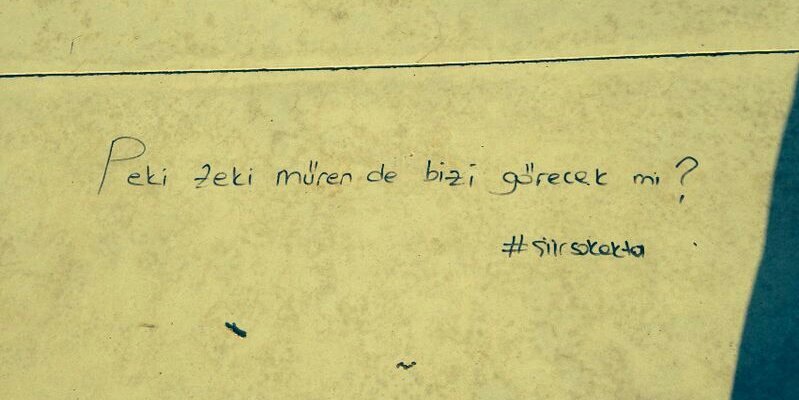 Peki zeki müren de bizi görecek mi?
#şiirsokakta